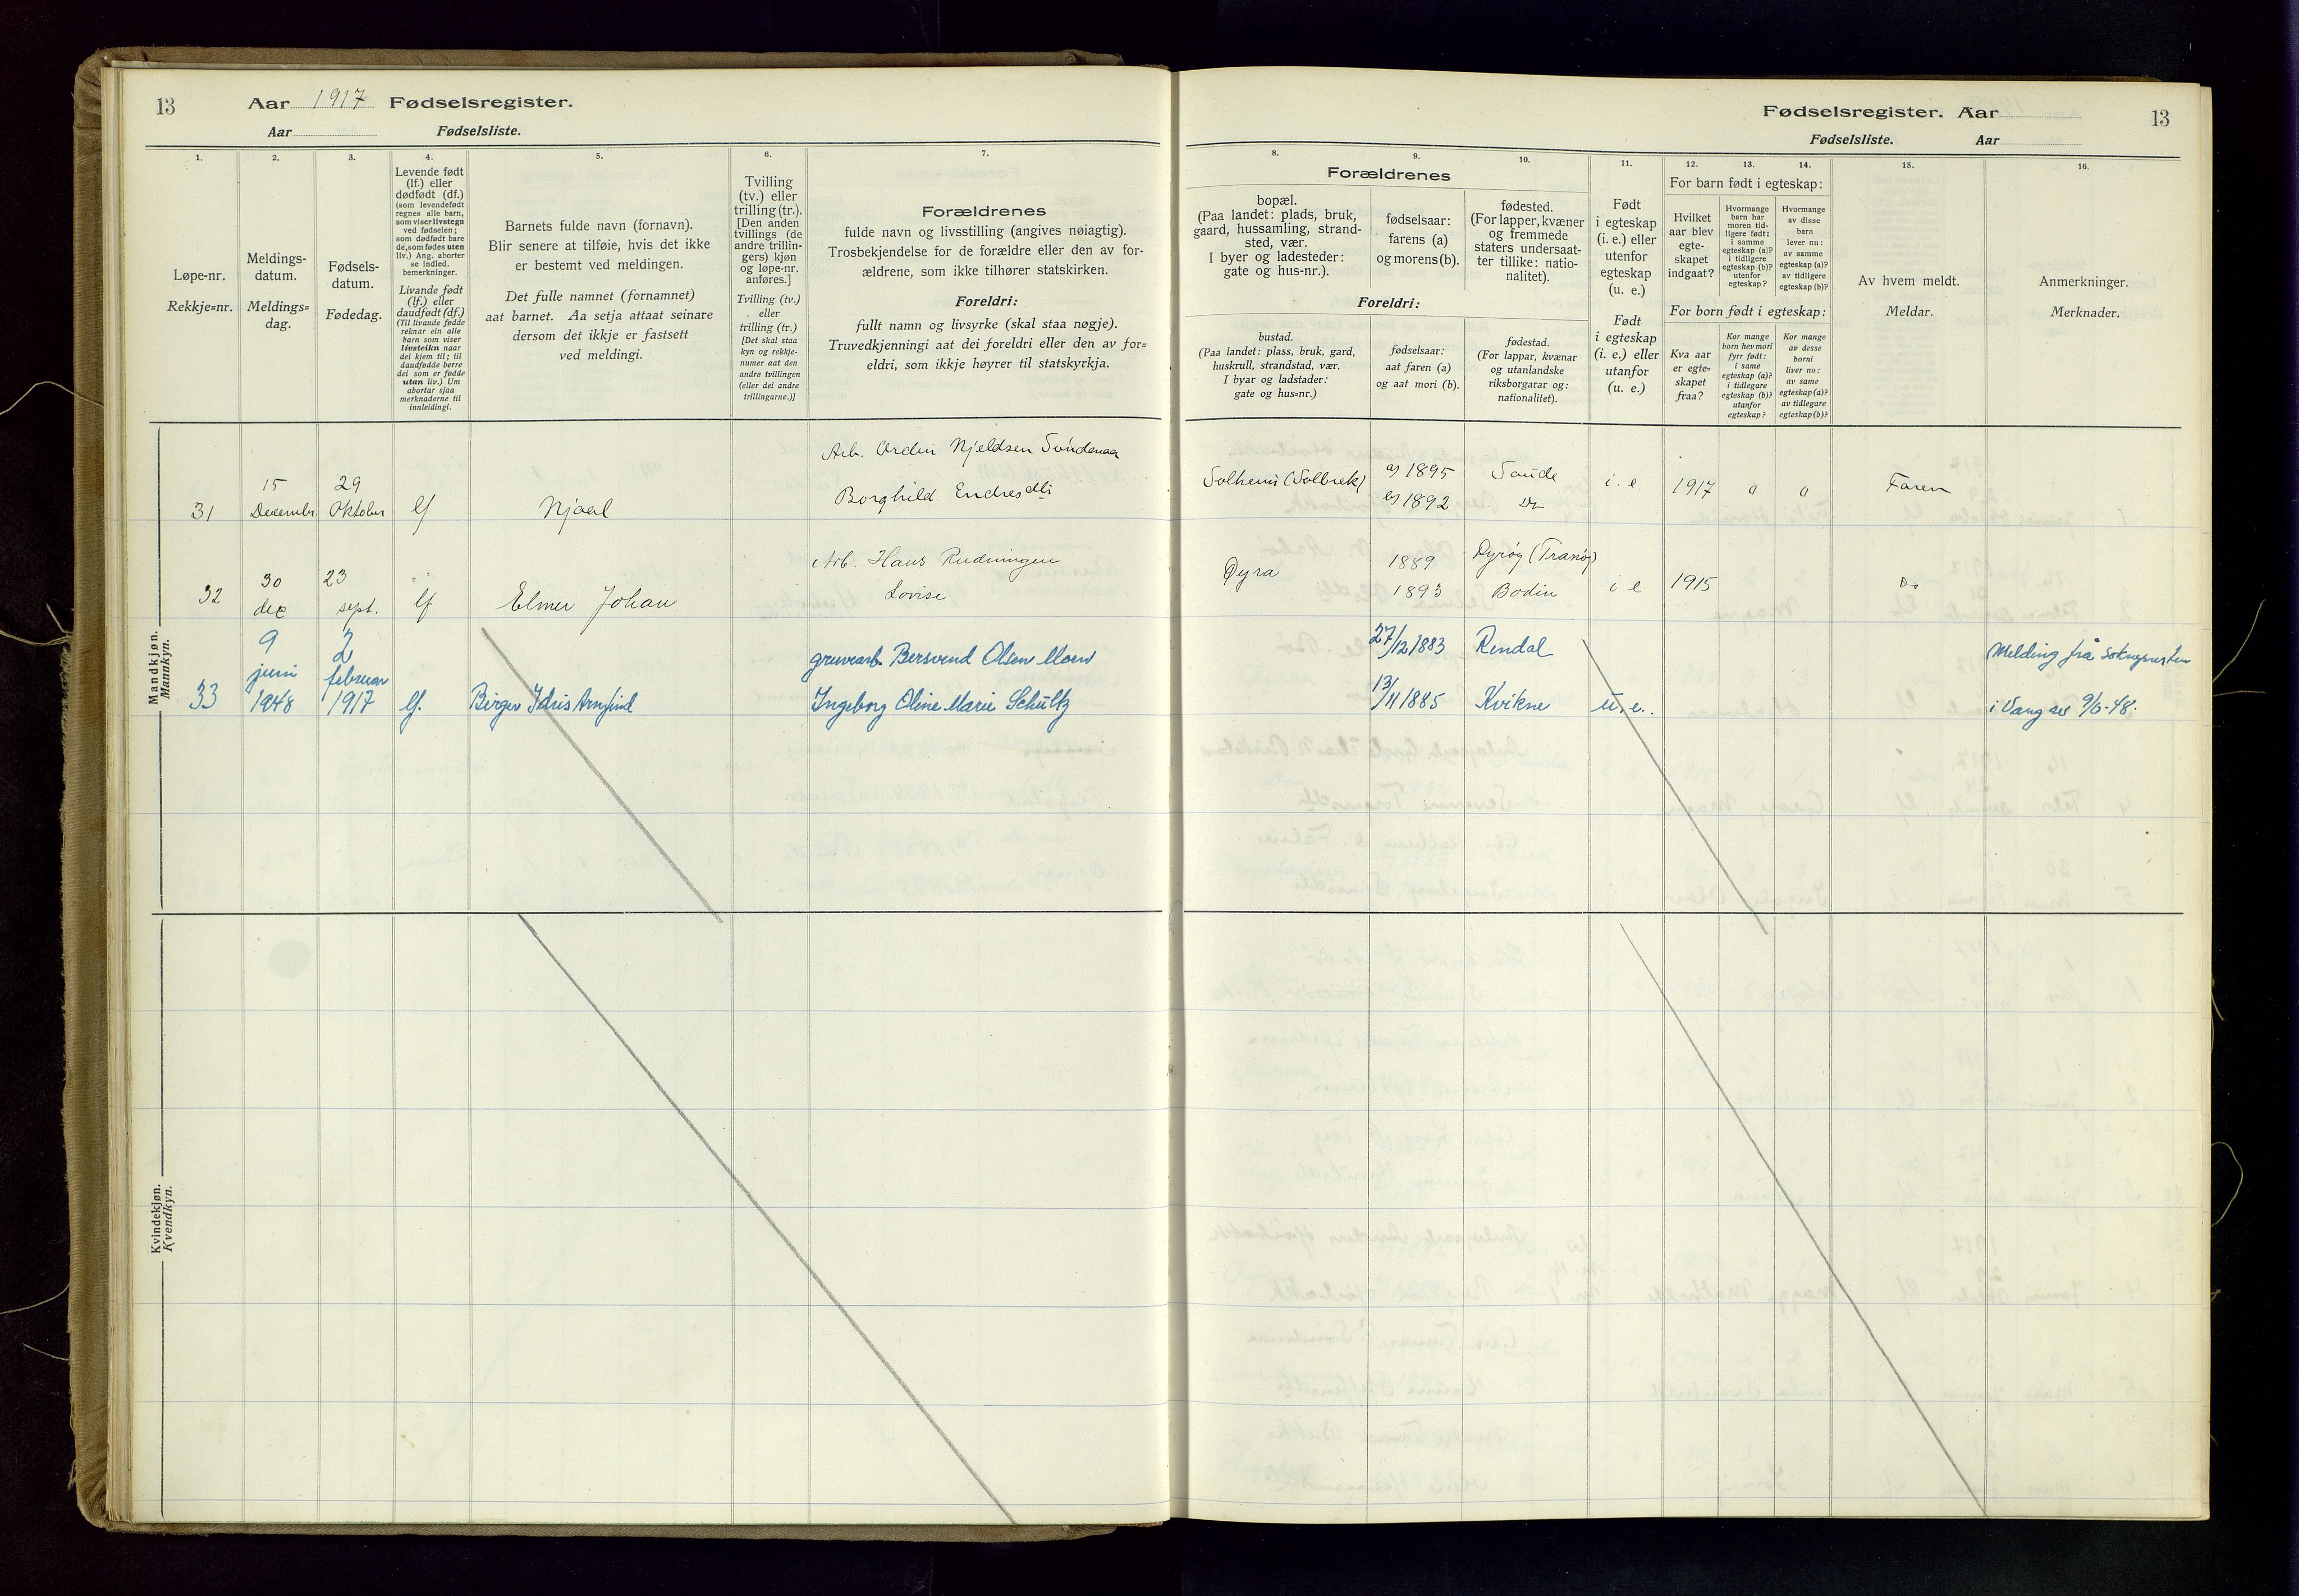 13
Aar 1917 Fødselsregister.
Aar Fødselsliste.
1.
2.
3.
4.
5.
6.
7.
Løpe-nr.
Rekkje=nr.
Meldings-
datum.
Meldings=
dag.
Fødsels-
datum.
Fødedag.
Levende født
(lf.) eller
dødfødt (df.)
(som levendefødt
regnes alle barn,
som viser livstegn
ved fødselen;
som dødfødt bare
de, som fødes uten
liv.) Ang. aborter
se indled.
bemerkninger.
Livande født
(lf.) eller
daudfødt (df.)
(Til livande fødde
reknar ein alle
barn som viser
livsteikn naar
dei kjem til; til
daudfødde berre
dei som er fødde
utan liv.) Um
abortar sjaa
merknaderne til
innleidingi.
Barnets fulde navn (fornavn).
Blir senere at tilføie, hvis det ikke
er bestemt ved meldingen.
Det fulle namnet (fornamnet)
aat barnet. Aa setja attaat seinare
dersom det ikkje er fastsett
ved meldingi.
Tvilling
(tv.) eller
trilling (tr.).
[Den anden
tvillings (de
andre trillin-
gers) kjøn
og løpe-nr.
anføres.]
Tvilling (tv.)
eller
trilling (tr.)
[Det skal staa
kyn og rekkje-
numer aat den
andre tvillingen
(eller dei andre
trillingarne.)]
Forældrenes
fulde navn og livsstilling (angives nøiagtig).
Trosbekjendelse for de forældre eller den av for-
ældrene, som ikke tilhører statskirken.
Foreldri:
fullt namn og livsyrke (skal staa nøgje).
Truvedkjenningi aat dei foreldri eller den av for=
eldri, som ikkje høyrer til statskyrkja.
Mandkjøn.
Mannkyn.
31
15
December
29
Oktober
lf
Njaal
Arb. Ordin Njeldsen Søndenaa
Borghild Endresdtr
32
30
dec
23
sept.
lf
Elmer Johan
Arb. Hans Rudningen
Lovise
33
9
juni
1948
2
februar
1917
lf.
Birger Idris Arnfind
gruvearb. Bersvend Olsen Moen
Ingeborg Oline Marie Schultz
Kvindekjøn.
Kvendkyn.
Fødselsregister. Aar
13
Fødselsliste. Aar
8.
9.
10.
11.
12.
13.
14.
15.
16.
Forældrenes
bopæl.
(Paa landet: plads, bruk,
gaard, hussamling, strand-
sted, vær.
I byer og ladesteder:
gate og hus-nr.).
fødselsaar:
farens (a)
og morens (b).
fødested.
(For lapper, kvæner
og fremmede
staters undersaat-
ter tillike: natio-
nalitet).
Foreldri:
bustad.
(Paa landet: plass, bruk, gard,
huskrull, strandstad, vær.
I byar og ladstader:
gate og hus=nr.)
fødselsaar:
aat faren (a)
og aat mori (b).
fødestad.
(For lappar, kvænar
og utanlandske
riksborgarar og:
nationalitet).
Født
i egteskap
(i. e.) eller
utenfor
egteskap
(u. e.)
Født
i egteskap
(i. e.) eller
utanfor
(u. e.)
For barn født i egteskap:
Hvilket
aar blev
egte-
skapet
indgaat?
Hvormange
barn har
moren tid-
ligere født:
i samme
egteskap (a)?
i tidligere
egteskap (b)?
utenfor
egteskap?
Hvormange
av disse
barn
lever nu:
av samme
egteskap (a)?
av tidligere
egteskap (b)?
For born født i egteskap:
Kva aar
er egte=
skapet
fraa?
Kor mange
born hev mori
fyrr født:
i same
egteskap (a)?
i tidlegare
egteskap (b)?
utanfor
egteskap?
Kor mange
av desse
borni
liver no:
av same
egteskap (a)?
av tidlegare
egteskap (b)?
Av hvem meldt.
Meldar.
Anmerkninger.
Merknader.
Solheim (Solbrek)
a) 1895
b) 1892
Saude
Do
i. e
1917
0
0
Faren
Øyra
1889
1893
Dyrøy (Tranøy)
Bodin
i e
1915
Do
27/12 1883
13/11 1885
Rendal
Kvikne
u. e.
Melding frå soknepresten
i Vang av 9/6-48.